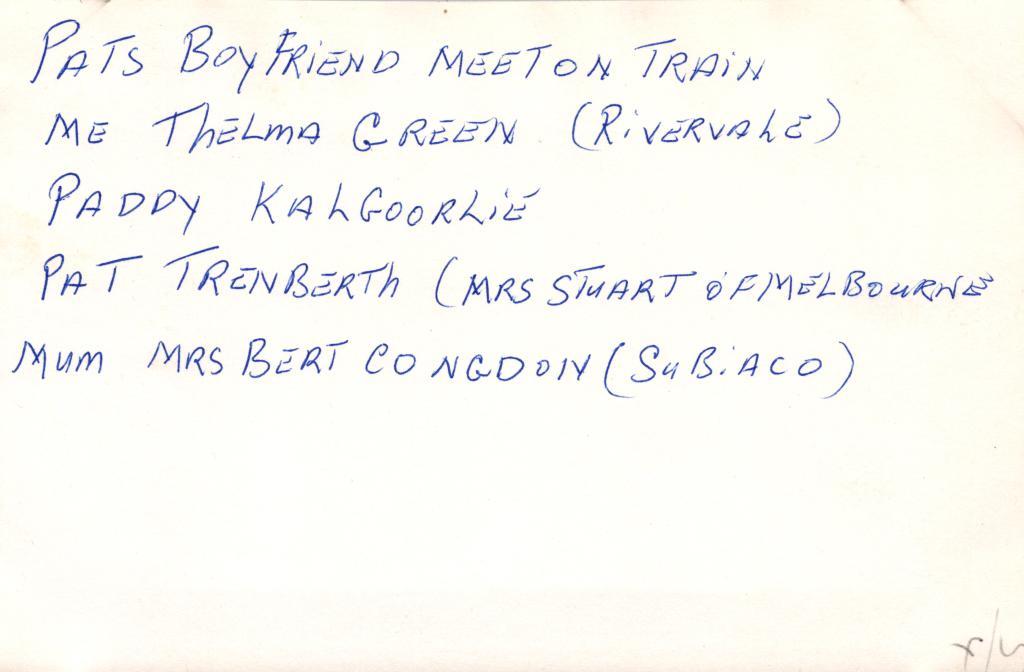 PATS BOYFRIEND MEET ON TRAIN
ME THELMA GREEN (RIVERVALE)
PADDY KALGOORLIE
PAT TRENBERTH (MRS STUART OF MELBOURNE
MUM MRS BERT CONGDON (SUBIACO)